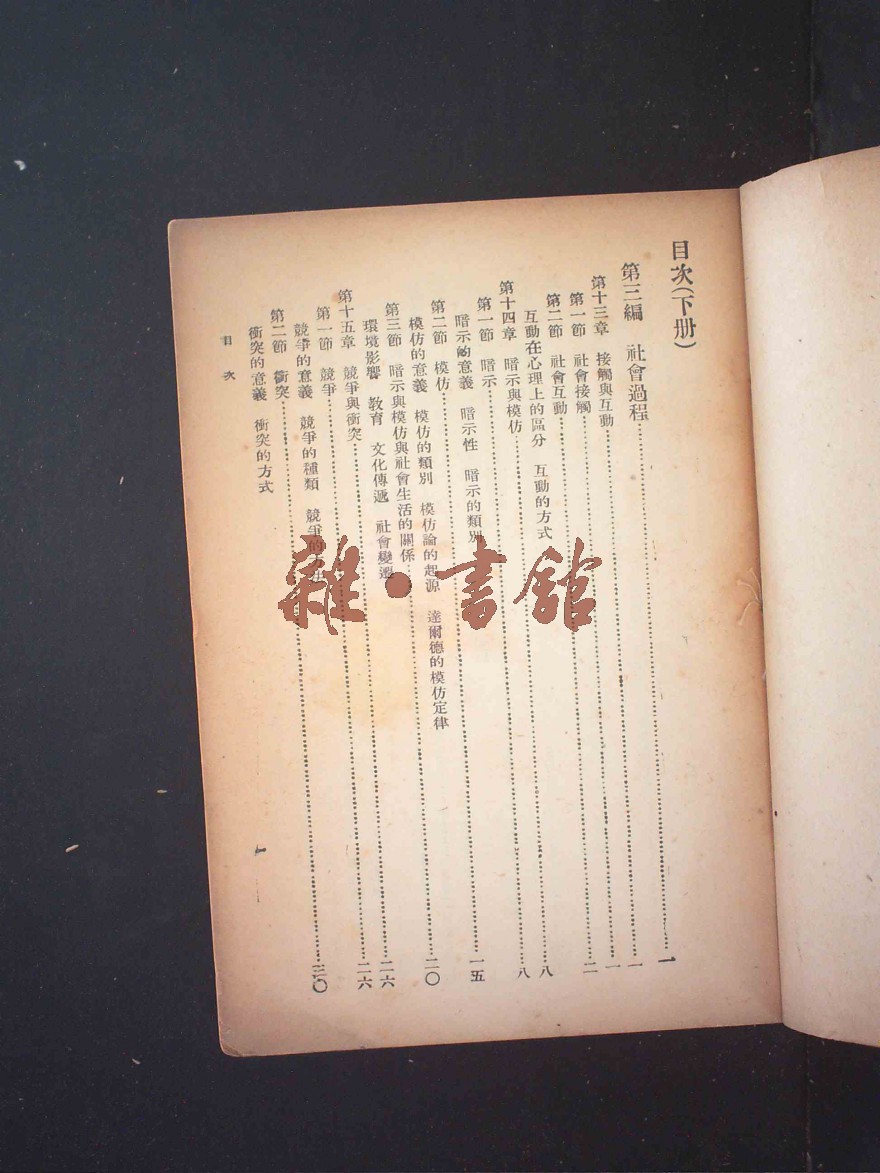 目次(下册)
第三編　社會過程……一
第十三章　接觸與互動……一
第一節　社會接觸……一
第二節　社會互動……二
互動在心理上的區分　互動的方式
第十四章　暗示與模仿……八
第一節　暗示……八
暗示的意義　暗示性　暗示的類別
第二節　模仿……一五
模仿的意義　模仿的類別　模仿論的起源　達爾德的模仿定律
第三節　暗示與模仿與社會生活的關係……二〇
環境影響　教育　文化傳遞　社會變遷
第十五章　競爭與衝突……二六
第一節　競爭……二六
競爭的意義　競爭的種類　競爭的方
第二節　衝突……三〇
衝突的意義　衝突的方式
目次
一
雜·書館